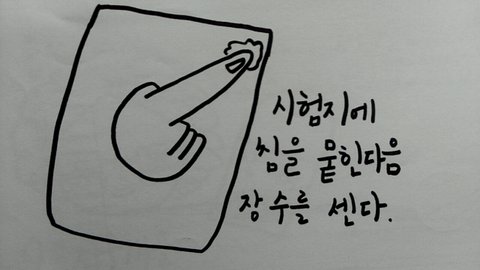 시험지에
침을 뭍힌다음
장수를 센다.